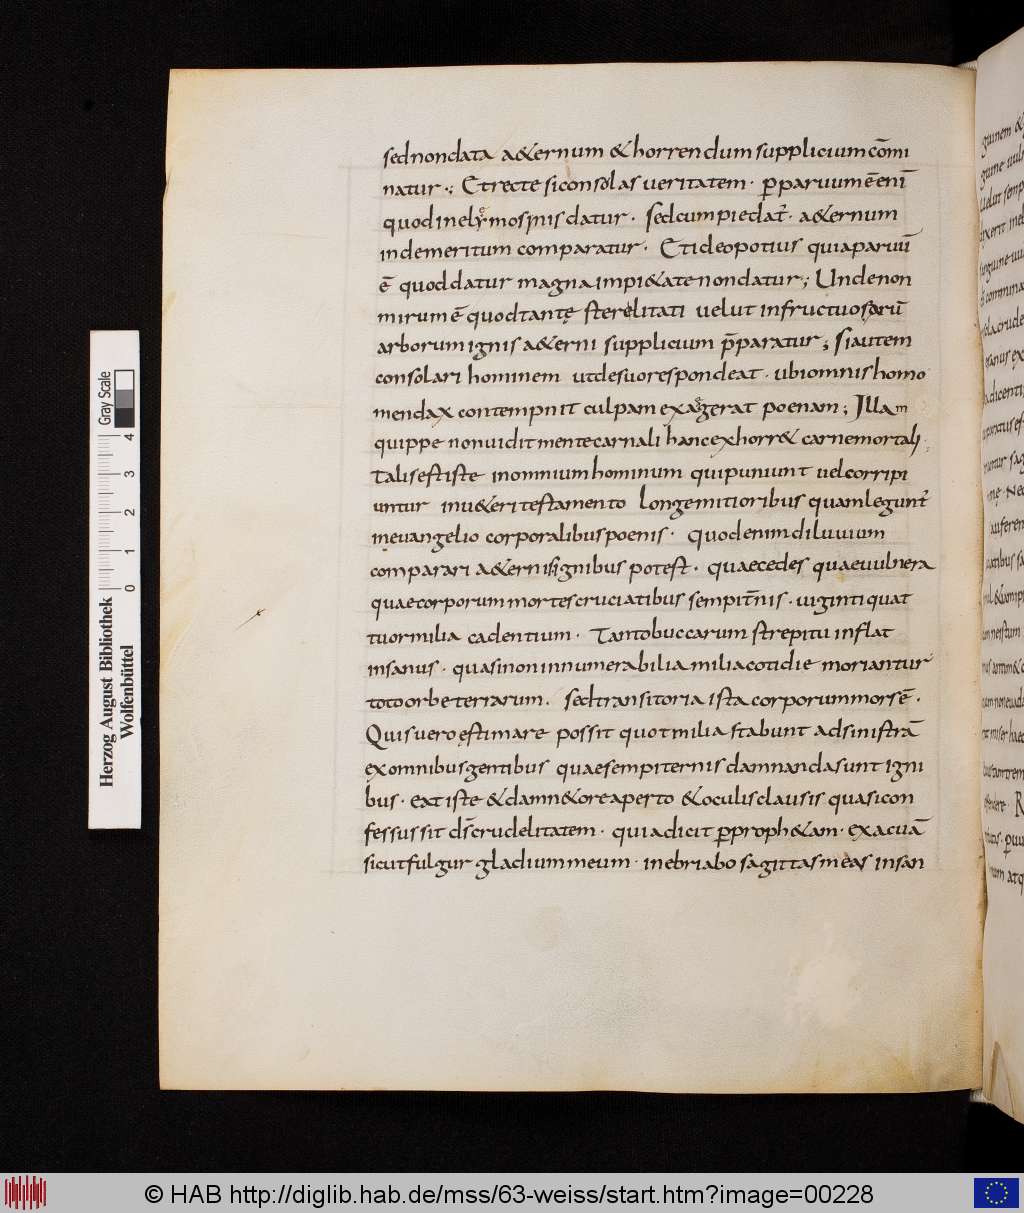 sed non data a&ernum & horrendum supplicium cōmi
natur·; Et recte si consolas ueritatem· p̄ paruum ē enī
quod in elymosinis datur· sed cum pie dat̄· a&ernum
indemeritum comparatur· Et ideo potius quia paruū
ē quod datur magna impi&ate non datur; Unde non
mirum ē quod tantę sterelitati uelut infructuosarū
arborum ignis a&erni supplicium p̄paratur; Si autem
consolari hominem ut de suo respondeat· ubi omnis homo
mendax contempnit culpam exaggerat poenam; Illam
quippe non uidit mente carnali hanc exhorr& carne mortali·
Talis est iste in omnium hominum qui puniunt uel corripi
untur in u&eri testamento longe mitioribus quam legunt̄
in euangelio corporalibus poenis· quod enim diluuium
comparari a&ernis ignibus potest· quae cedes quae uulnera
quae corporum mortes cruciatibus sempit̄nis· uiginti quat
tuor milia cadentium· Tanto buccarum strepitu inflat
insanus· quasi non innumerabilia milia cotidie moriantur
toto orbe terrarum· sed transitoria ista corporum mors ē·
Quis uero ęstimare possit quot milia stabunt ad sinistrā
ex omnibus gentibus quae sempiternis damnanda sunt igni
bus· eat iste & damn& ore aperto & oculis clausis quasi con
fessus sit dī crudelitatem· quia dicit p̄ proph&am· exacuā
sicut fulgur gladium meum· inebriabo sagittas meas in san
Herzog August Bibliothek
Wolfenbüttel
Gray Scale
0 1 2 3 4
© HAB http://diglib.hab.de/mss/63-weiss/start.htm?image=00228